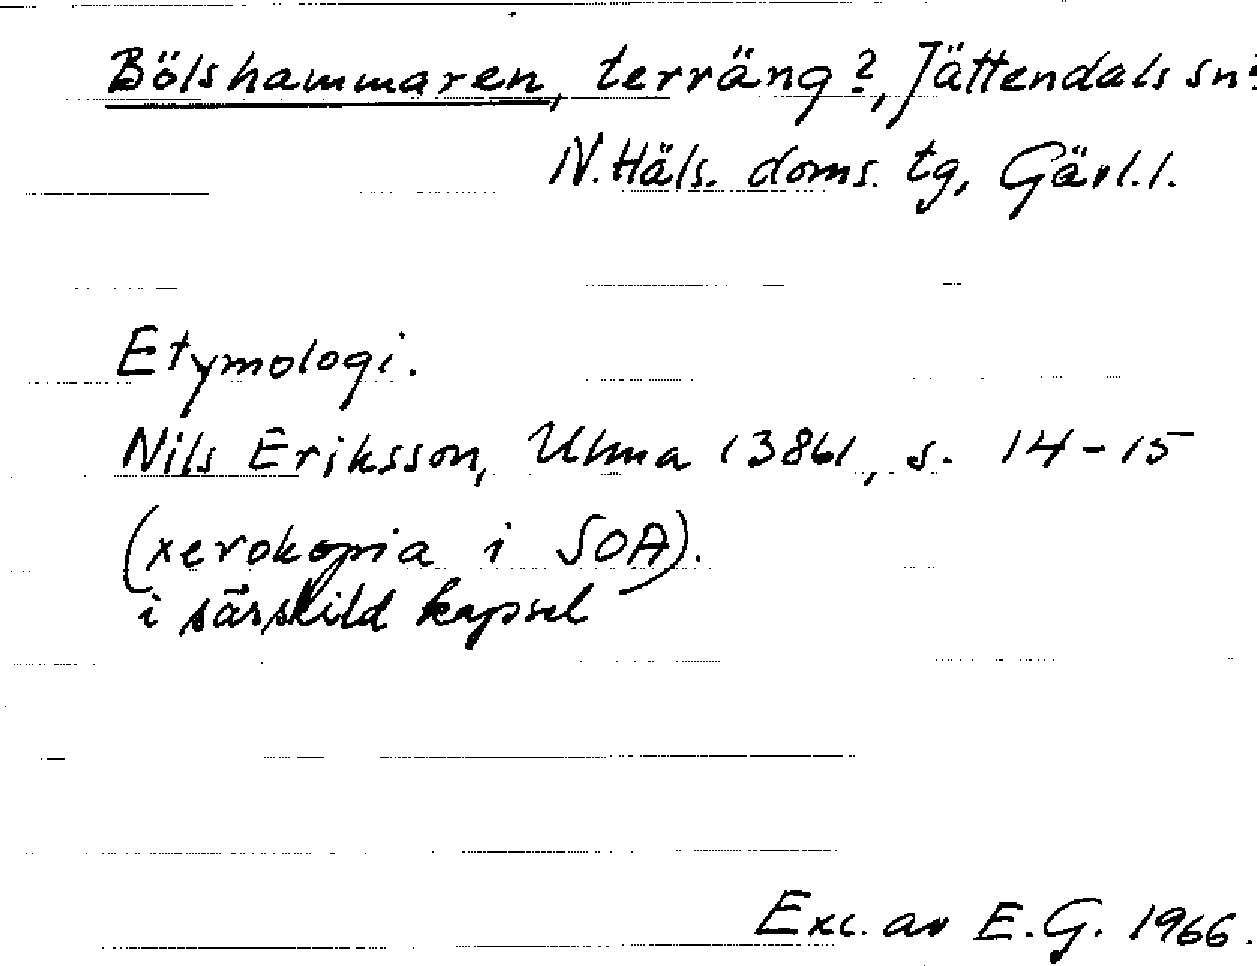 Bölshammaren, terräng?, Jättendals sn?
N. Häls. doms. tg, Gävl. l.
Etymologi.
Nils Eriksson, Ulma 13861, s. 14-15
(xerokopia i SOA).
i särskild kapsel
Exc. av E.G. 1966.